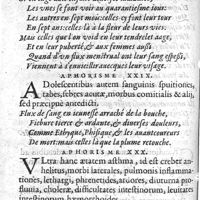 Les vnes se font voir au quarantiesme iour:
Les autres en sept mois: celles-cy font leur tour
En sept ans: celles-là à la fleur de leurs vies:
Mais celles que l'an void en leur tendrelet aage,
Et en leur puberté, & aux femmes aussi
Quand d'vn flux menstrual ont leur sang espessi,
Viennent à s'enuieillir auecques leur visage.
APHORISME XXIX.
ADolescentibus autem sanguinis spuitiones,
tabes, febres acutæ, morbus comitialis & alij,
sed præcipuè antedicti.
Flux de sang en ieunesse arraché de la bouche,
Fichure tierce & ardante, & diverses douleurs,
Comme Ethyque, Phisique, & les auantcoureurs
De mort: mais celles là que la plume retouche.
APHORISME XXX.
VLtra hanc ætatem asthma, id est creber an-
helitus, morbi laterales, pulmonis inflamma-
tiones, lethargi, phrenetides, ardores, diuturna pro-
fluuia, choleræ, difficultates intestinorum, leuitates
intestinorum, hæmorrhoides